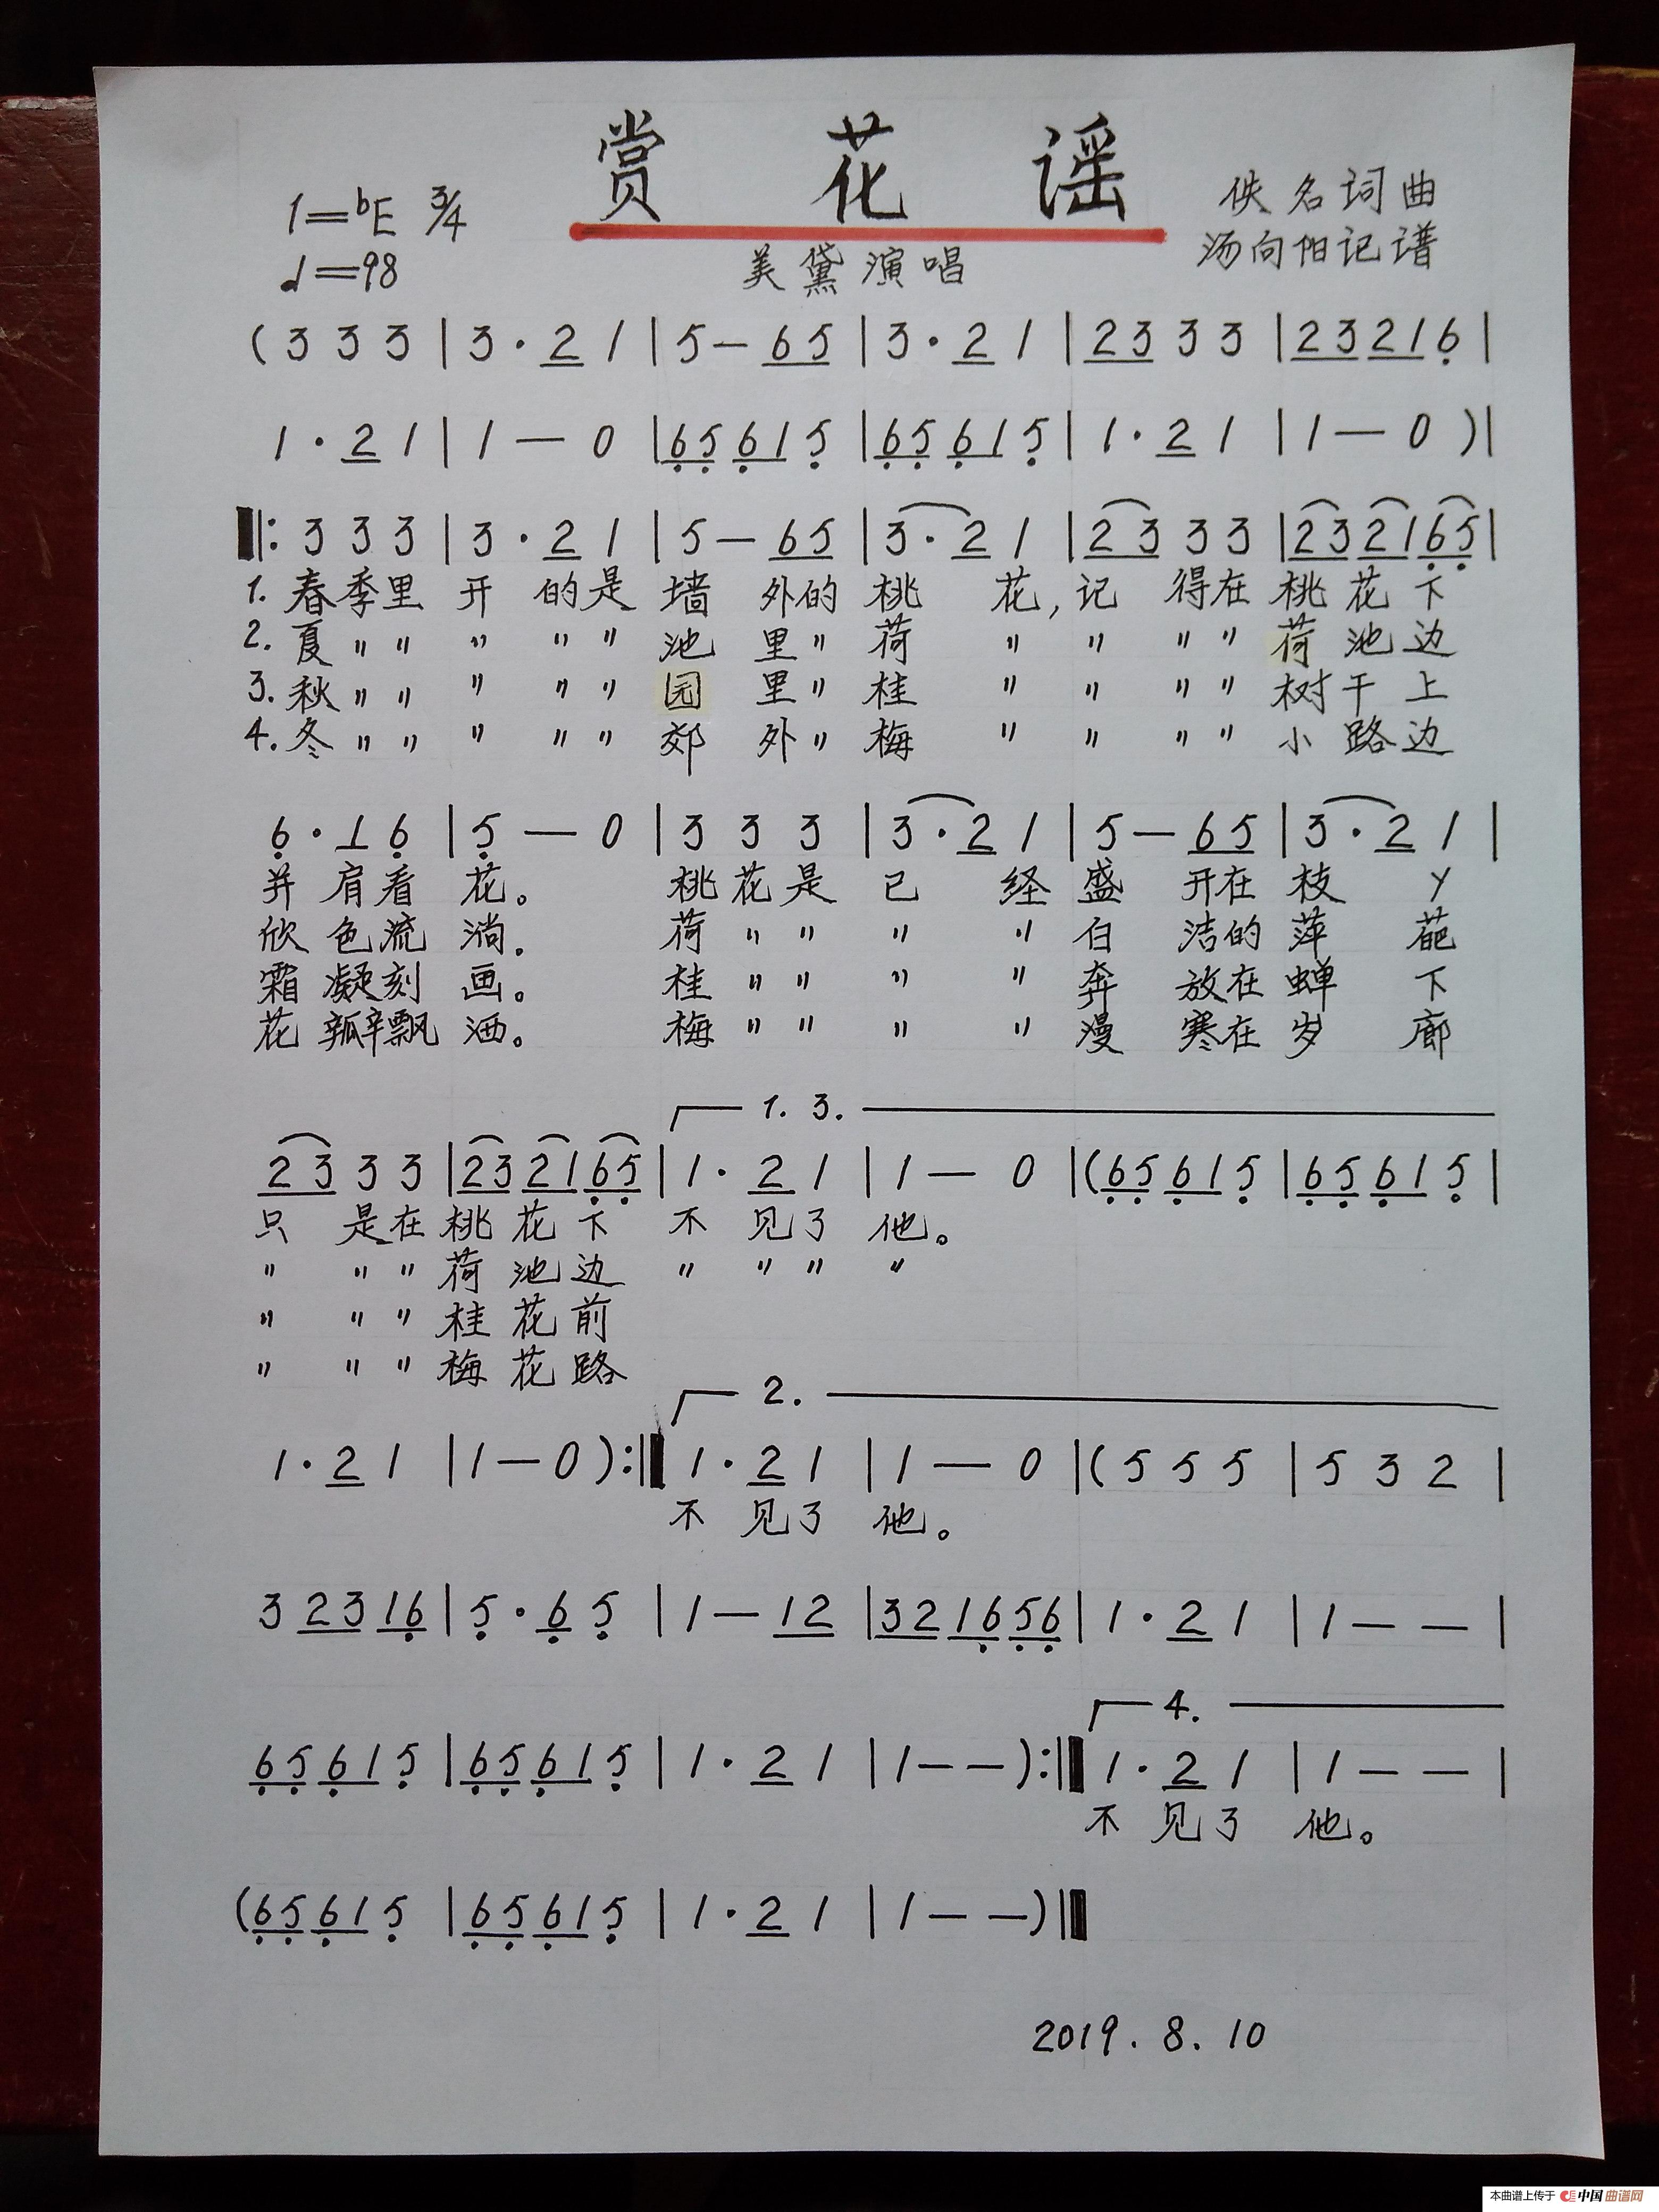 赏花谣
1=bE 3/4
佚名词曲
♩=98
美黛演唱
汤向阳记谱
(3 3 3 | 3·2 1 | 5 — 6 5 | 3·2 1 | 2 3 3 3 | 2 3 2 1 6̣ |
1·2 1 | 1 — 0 | 6̣ 5̣ 6̣ 1 5̣ | 6̣ 5̣ 6̣ 1 5̣ | 1·2 1 | 1 — 0 )|
‖: 3 3 3 | 3·2 1 | 5 — 6 5 | 3·2 1 | 2 3 3 3 | 2 3 2 1 6̣ 5̣ |
1. 春季里 开 的是 墙 外的 桃 花, 记 得在 桃 花 下
2. 夏 〃 〃 〃 〃 〃 池 里 〃 荷 〃 〃 〃 〃 荷 池 边
3. 秋 〃 〃 〃 〃 〃 园 里 〃 桂 〃 〃 〃 〃 树 干 上
4. 冬 〃 〃 〃 〃 〃 郊 外 〃 梅 〃 〃 〃 〃 小 路 边
6̣·1 6̣ | 5̣ — 0 | 3 3 3 | 3·2 1 | 5 — 6 5 | 3·2 1 |
并 肩看 花。 桃花是 已 经 盛 开在 枝 丫
欣 色流 淌. 荷 〃 〃 〃 〃 白 洁的 萍 葩
霜 凝刻 画。 桂 〃 〃 〃 〃 奔 放在 蝉 下
花 瓣飘 洒。 梅 〃 〃 〃 〃 漫 寒在 岁 廊
1. 3.
2 3 3 3 | 2 3 2 1 6̣ 5̣ | 1·2 1 | 1 — 0 |(6̣ 5̣ 6̣ 1 5̣ | 6̣ 5̣ 6̣ 1 5̣ |
只 是在 桃 花 下 不 见了 他。
〃 〃 〃 荷 池 边 〃 〃 〃 〃
〃 〃 〃 桂 花 前
〃 〃 〃 梅 花 路
2.
1·2 1 | 1 — 0 ):‖ 1·2 1 | 1 — 0 |( 5 5 5 | 5 3 2 |
不 见了 他。
3 2 3 1 6̣ | 5̣·6̣ 5̣ | 1 — 1 2 | 3 2 1 6̣ 5̣ 6̣ | 1·2 1 | 1 — — |
4.
6̣ 5̣ 6̣ 1 5̣ | 6̣ 5̣ 6̣ 1 5̣ | 1·2 1 | 1 — — ):‖ 1·2 1 | 1 — — |
不 见了 他。
(6̣ 5̣ 6̣ 1 5̣ | 6̣ 5̣ 6̣ 1 5̣ | 1·2 1 | 1 — — )‖
2019. 8. 10
本曲谱上传于 中国曲谱网